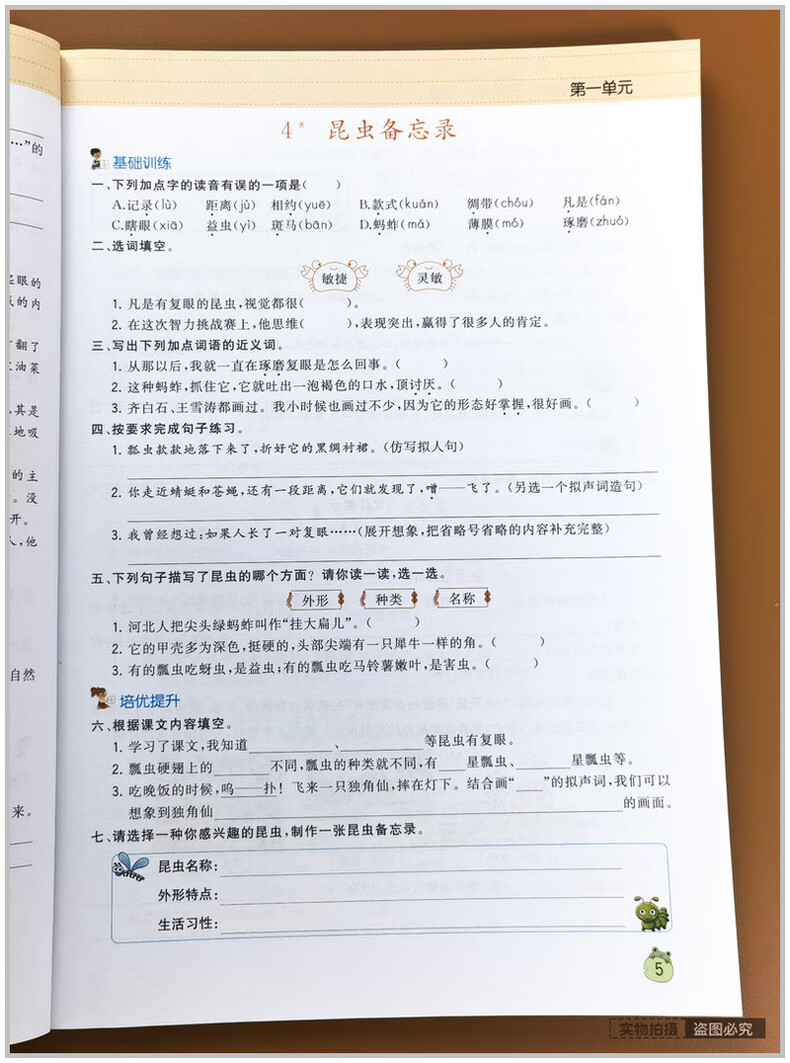 第一单元
4* 昆虫备忘录
基础训练
一、下列加点字的读音有误的一项是( )
A.记录(lù) 距离(jù) 相约(yuē) B.款式(kuǎn) 绸带(chóu) 凡是(fán)
C.瞎眼(xiā) 益虫(yì) 斑马(bān) D.蚂蚱(mǎ) 薄膜(mó) 琢磨(zhuó)
二、选词填空。
敏捷 灵敏
1. 凡是有复眼的昆虫,视觉都很( )。
2. 在这次智力挑战赛上,他思维( ),表现突出,赢得了很多人的肯定。
三、写出下列加点词语的近义词。
1. 从那以后,我就一直在琢磨复眼是怎么回事。( )
2. 这种蚂蚱,抓住它,它就吐出一泡褐色的口水,顶讨厌。( )
3. 齐白石、王雪涛都画过。我小时候也画过不少,因为它的形态好掌握,很好画。( )
四、按要求完成句子练习。
1. 瓢虫款款地落下来了,折好它的黑绸衬裙。(仿写拟人句)
2. 你走近蜻蜓和苍蝇,还有一段距离,它们就发现了,噌——飞了。(另选一个拟声词造句)
3. 我曾经想过:如果人长了一对复眼……(展开想象,把省略号省略的内容补充完整)
五、下列句子描写了昆虫的哪个方面？请你读一读,选一选。
外形 种类 名称
1. 河北人把尖头绿蚂蚱叫作“挂大扁儿”。( )
2. 它的甲壳多为深色,挺硬的,头部尖端有一只犀牛一样的角。( )
3. 有的瓢虫吃蚜虫,是益虫;有的瓢虫吃马铃薯嫩叶,是害虫。( )
培优提升
六、根据课文内容填空。
1. 学习了课文,我知道____、____等昆虫有复眼。
2. 瓢虫硬翅上的____不同,瓢虫的种类就不同,有____星瓢虫、____星瓢虫等。
3. 吃晚饭的时候,呜——扑！飞来一只独角仙,摔在灯下。结合画“____”的拟声词,我们可以
想象到独角仙____的画面。
七、请选择一种你感兴趣的昆虫,制作一张昆虫备忘录。
昆虫名称:
外形特点:
生活习性:
5
…”的
起眼的
氏的内
翻了
油菜
其是
地吸
的主
。没
开。
人,他
自然
来。
实物拍摄 盗图必究